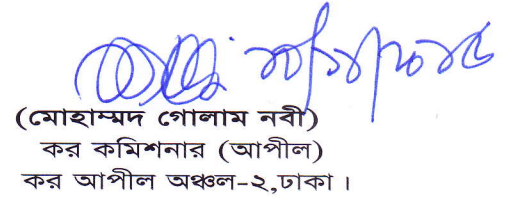 (মোহাম্মদ গোলাম নবী)
কর কমিশনার (আপীল)
কর আপীল অঞ্চল-২,ঢাকা।